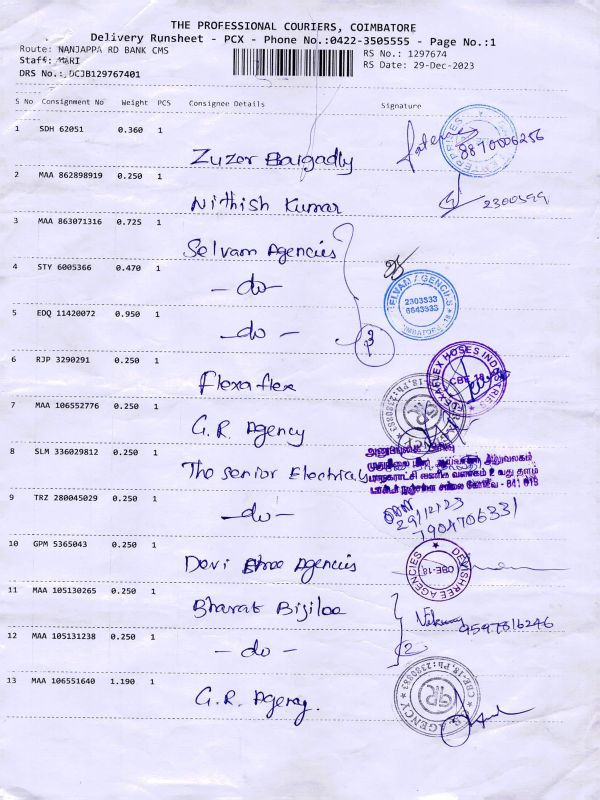 THE PROFESSIONAL COURIERS, COIMBATORE
Delivery Runsheet - PCX - Phone No.:0422-3505555 - Page No.:1
Route: NANJAPPA RD BANK CMS RS No.: 1297674
Staff: MARI RS Date: 29-Dec-2023
DRS No.: DCJB129767401
S No Consignment No Weight PCS Consignee Details Signature
1 SDH 62051 0.360 1
8870006256
Zuzer
2 MAA 862898919 0.250 1
Nithish Kumar
3 MAA 863071316 0.725 1
Selvam Agencies
4 STY 6005366 0.470 1
- do -
2303533
6643533
5 EDQ 11420072 0.950 1
- do -
3
6 RJP 3290291 0.250 1
Flexaflex
FLEXAFLEX HOSES INDUSTRIES
CBE-18
7 MAA 106552776 0.250 1
G.R. Agency
GR
8 SLM 336029812 0.250 1
The Senior Electrical
9 TRZ 280045029 0.250 1
- do -
29/12/23
7904706331
10 GPM 5365043 0.250 1
Devi Shree Agencies
DEVI SHREE AGENCIES
CBE-18
11 MAA 105130265 0.250 1
Bharat Bijilee
9597816246
12 MAA 105131238 0.250 1
- do -
2
13 MAA 106551640 1.190 1
G.R. Agency.
GR